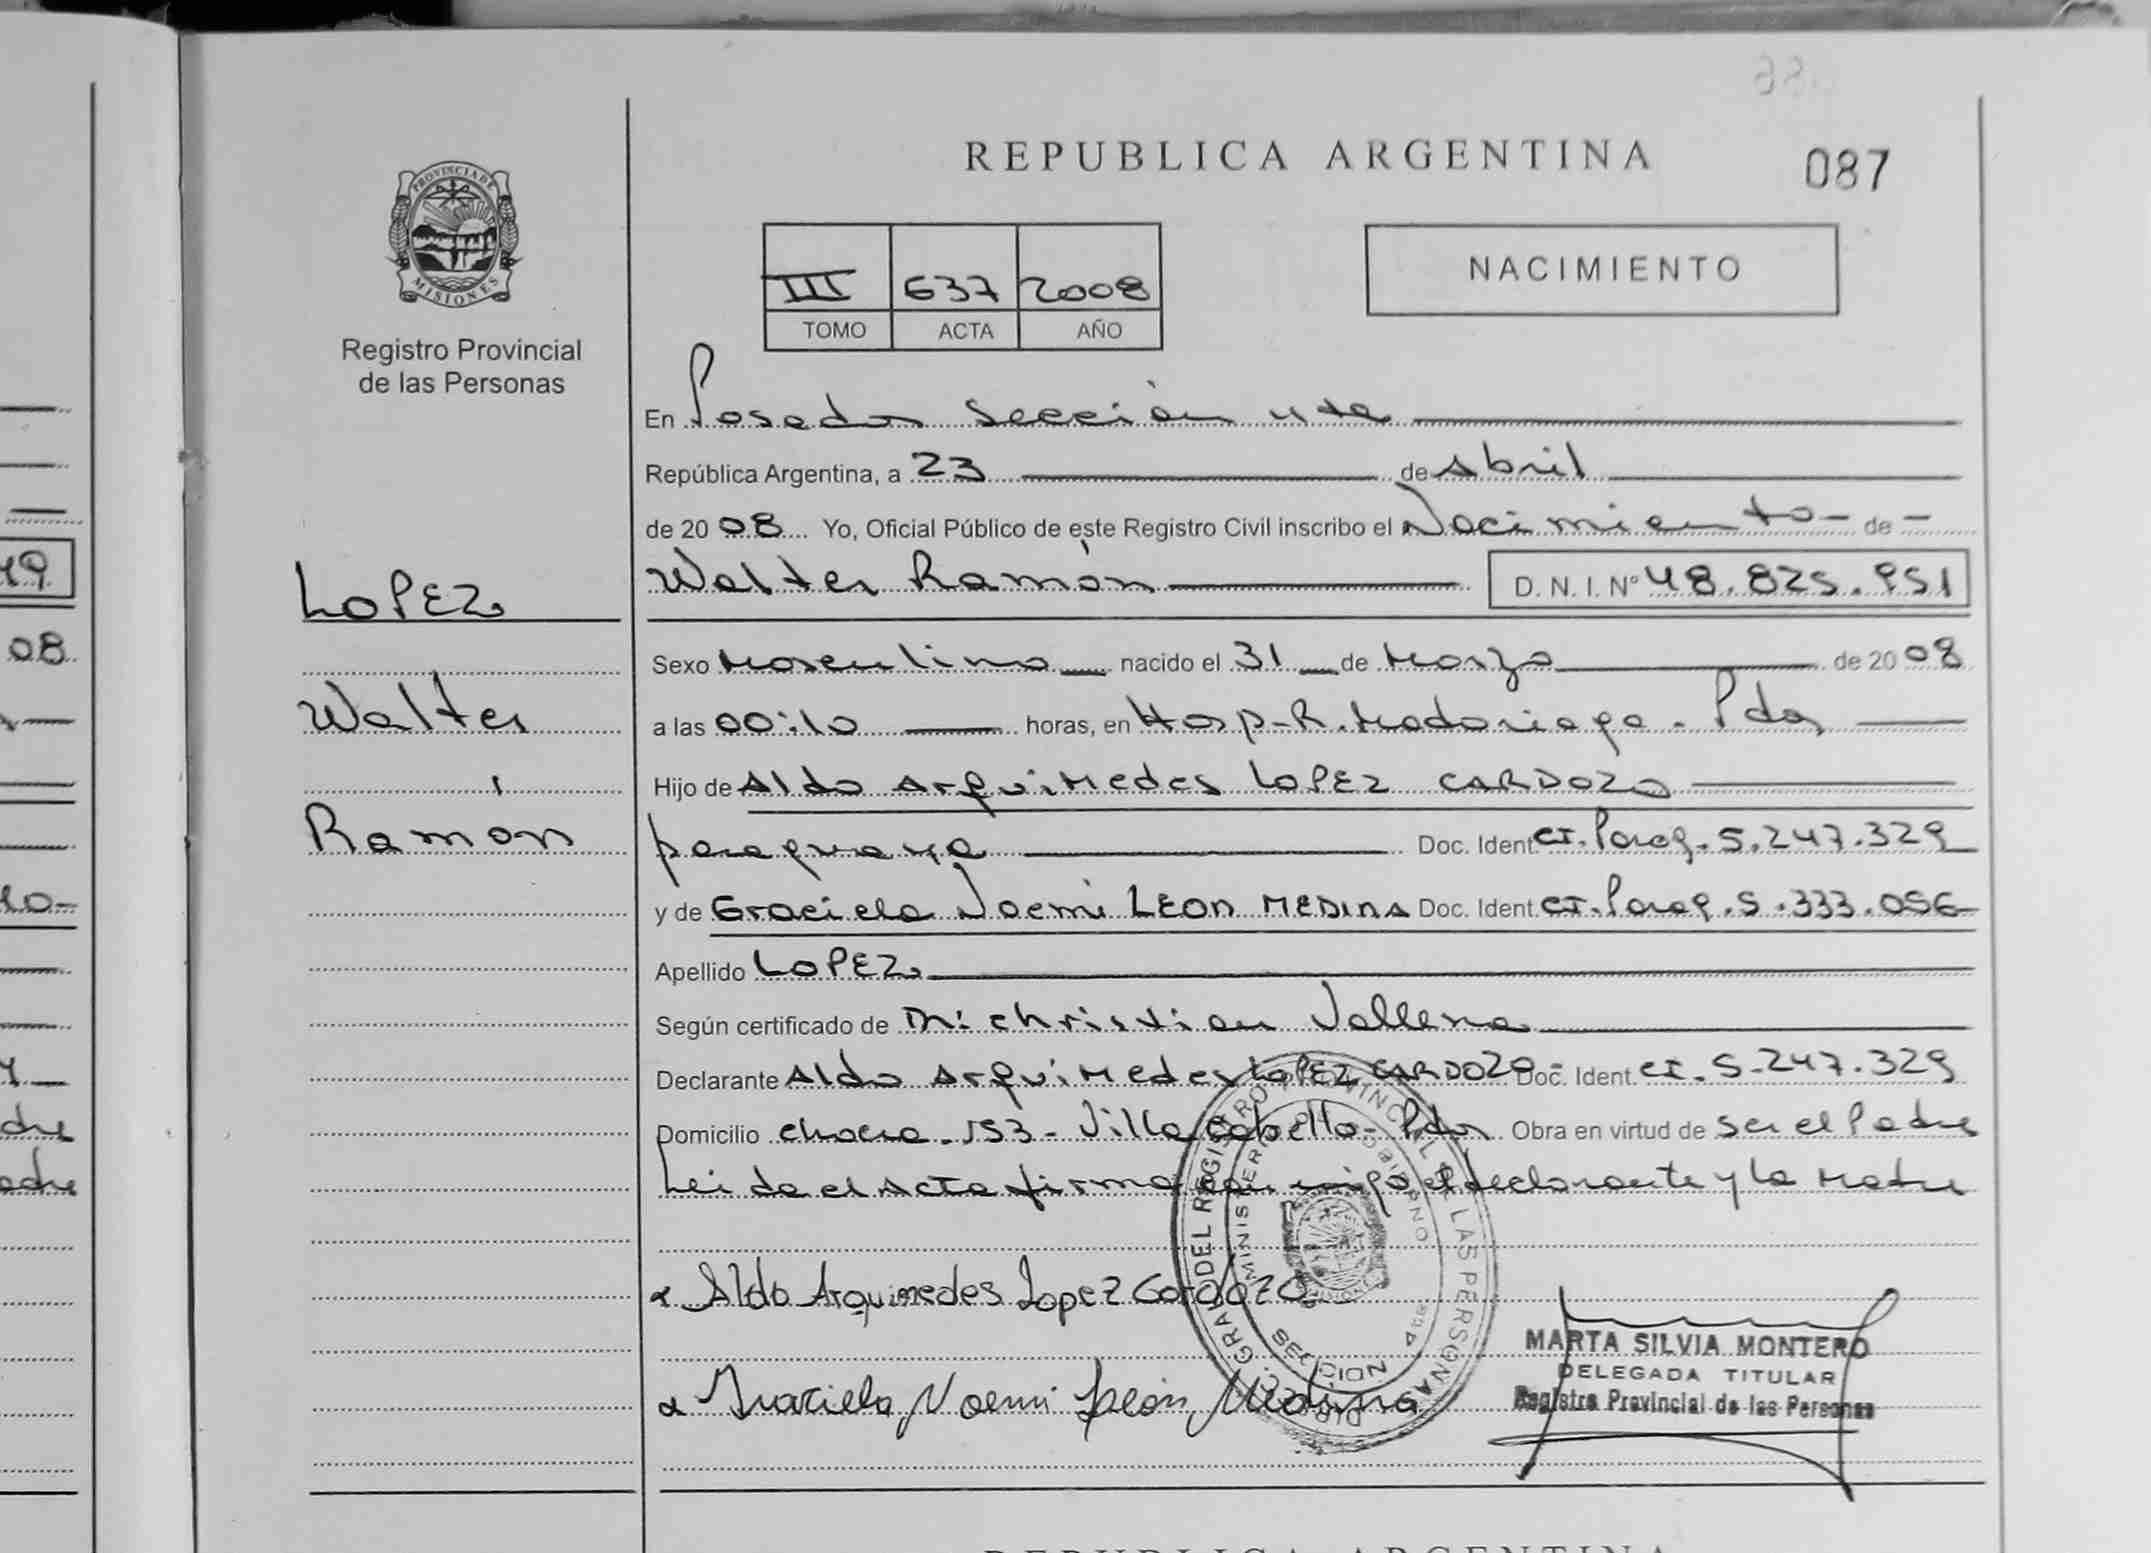 REPUBLICA ARGENTINA
087
PROVINCIA DE
MISIONES
Registro Provincial
de las Personas
III 637 2008
TOMO ACTA AÑO
NACIMIENTO
En Posadas Sección 4ta
República Argentina, a 23 de Abril
de 2008 Yo, Oficial Público de este Registro Civil inscribo el Nacimiento - de -
LOPEZ
Walter Ramón D. N. I. Nº 48.825.951
Sexo Masculino nacido el 31 de Marzo de 2008
Walter
a las 00:10 horas, en Hosp. R. Madariaga - Pdas
Hijo de Aldo Arquimedes LOPEZ CARDOZO
Ramón
paraguaya Doc. Ident. CI. Parag. 5.247.329
y de Graciela Noemi LEON MEDINA Doc. Ident. CI. Parag. 5.333.056
Apellido LOPEZ
Según certificado de Christian Vallena
Declarante Aldo Arquimedes LOPEZ CARDOZO - Doc. Ident. CI. 5.247.329
Domicilio Chacra 153 - Villa Cabello - Pdas Obra en virtud de ser el Padre
Leida el Acta firma conmigo el declarante y la Madre
Aldo Arquimedes Lopez Cardozo
Graciela Noemi León Medina
SECCION 4ta
MARTA SILVIA MONTERO
DELEGADA TITULAR
Registro Provincial de las Personas
REPUBLICA ARGENTINA